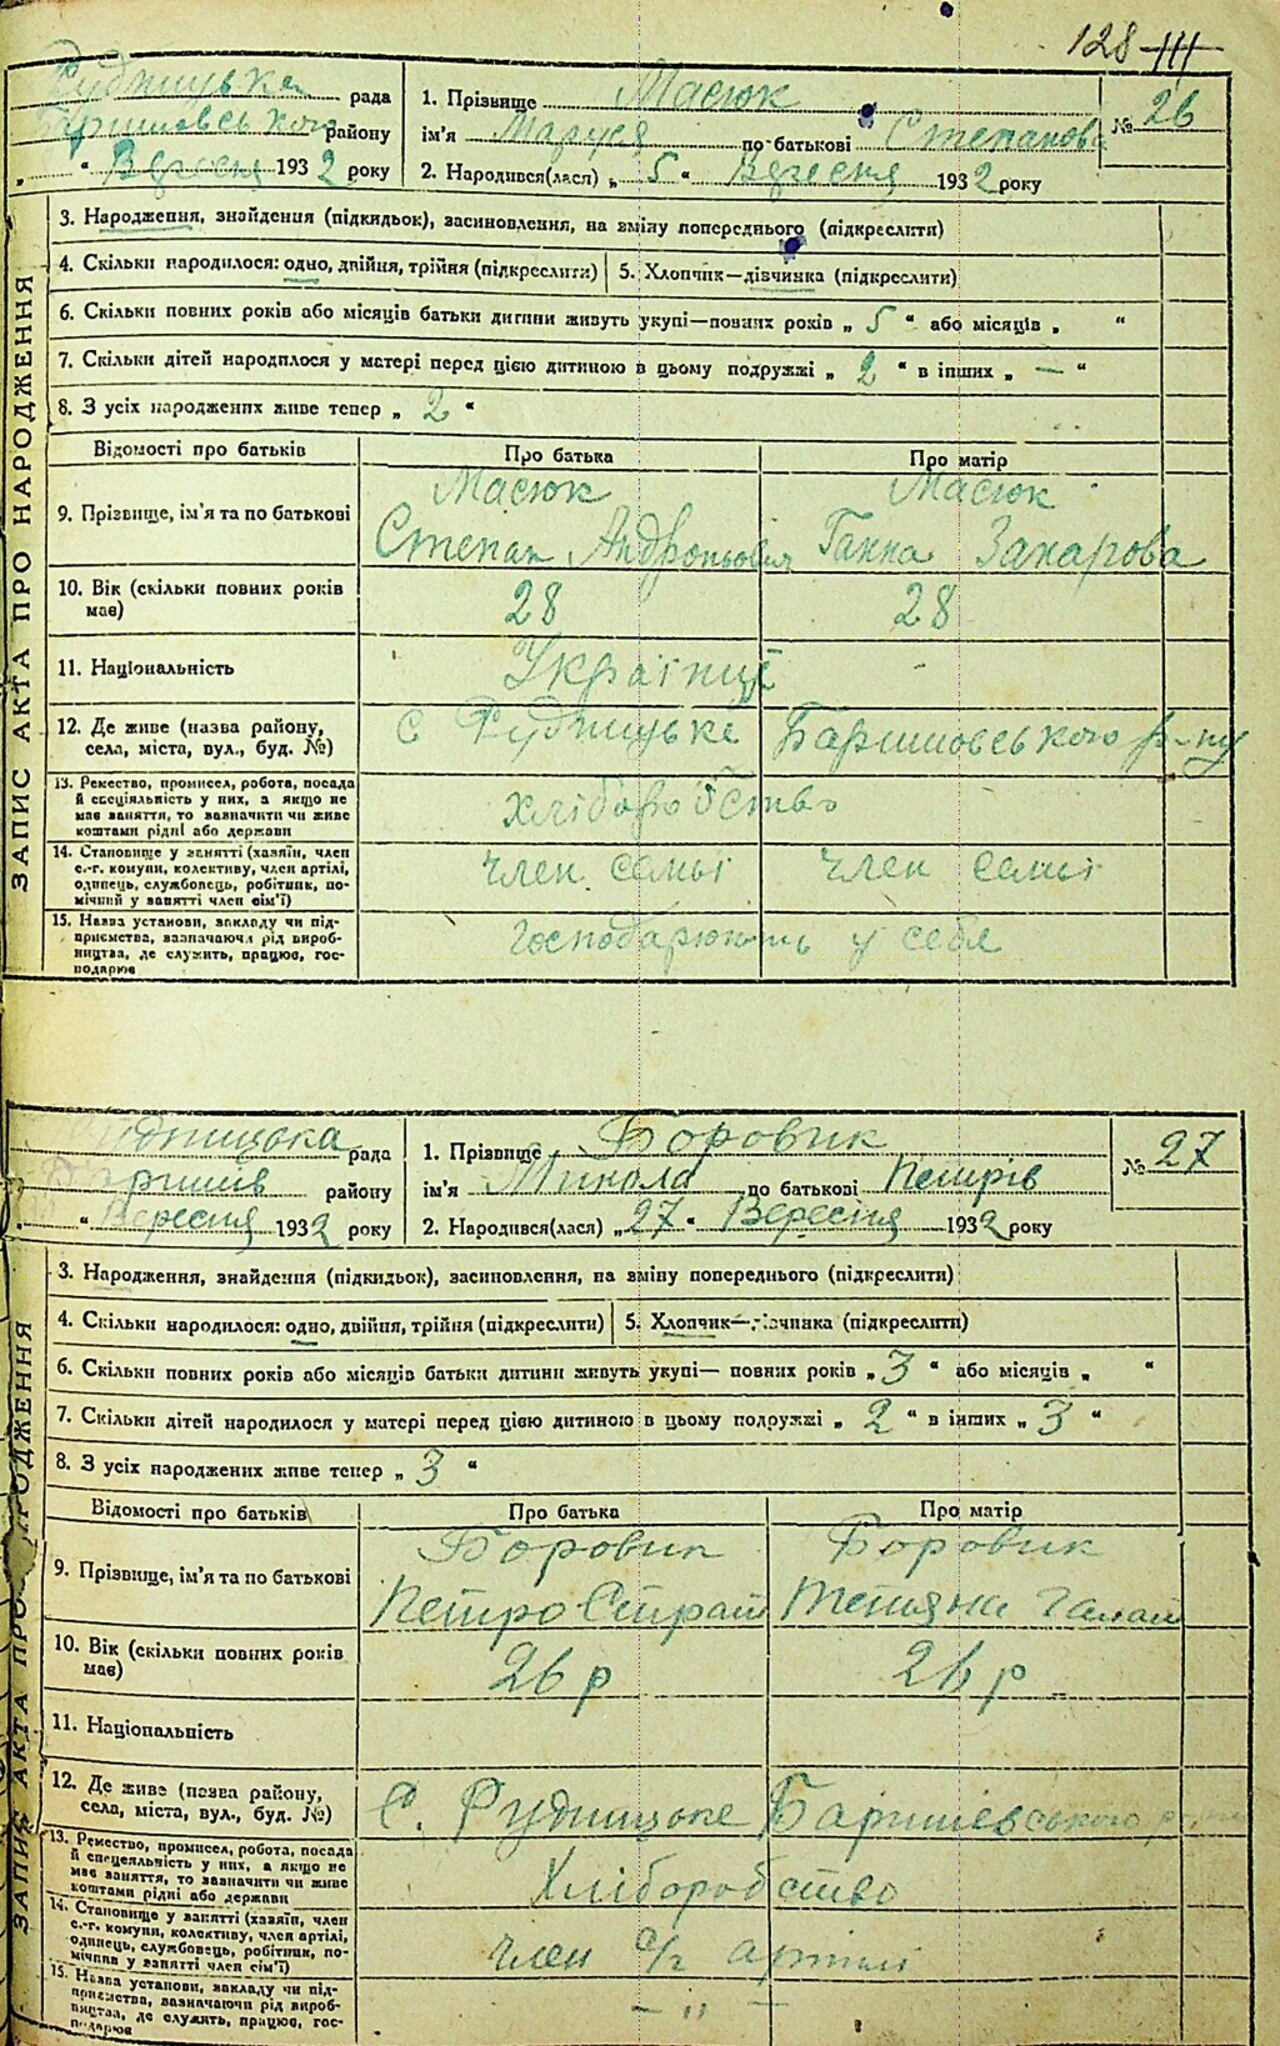 128 III
Рудницька рада
Баришовського району
„ “ Вересня 1932 року
1. Прізвище Масюк
ім'я Маруся по батькові Степанова
2. Народився(лася) „ 5 “ Вересня 1932 року
№ 26
ЗАПИС АКТА ПРО НАРОДЖЕННЯ
3. Народження, знайдення (підкидьок), засиновлення, на зміну попереднього (підкреслити)
4. Скільки народилося: одно, двійня, трійня (підкреслити) 5. Хлопчик—дівчинка (підкреслити)
6. Скільки повних років або місяців батьки дитини живуть укупі—повних років „ 5 “ або місяців „ “
7. Скільки дітей народилося у матері перед цією дитиною в цьому подружжі „ 2 “ в інших „ — “
8. З усіх народжених живе тепер „ 2 “
Відомості про батьків Про батька Про матір
9. Прізвище, ім'я та по батькові
Масюк Масюк
Степан Андроньович Ганна Захарова
10. Вік (скільки повних років має) 28 28
11. Національність Українці
12. Де живе (назва району, села, міста, вул., буд. №) с Рудницьке Баришовського р-ну
13. Ремество, промисел, робота, посада
й спеціяльність у них, а якщо не
має заняття, то зазначити чи живе
коштами рідні або держави
хліборобство
14. Становище у занятті (хазяїн, член
с.-г. комуни, колективу, член артілі,
одинець, службовець, робітник, по-
мічний у занятті член сім'ї)
член семьї член семьї
15. Назва установи, закладу чи під-
приємства, зазначаючи рід вироб-
ництва, де служить, працює, гос-
подарює
господарюють у себе
Рудницька рада
Баришів району
“ Вересня 1932 року
1. Прізвище Боровик
ім'я Микола по батькові Петрів
2. Народився(лася) „ 27 “ Вересня 1932 року
№ 27
ЗАПИС АКТА ПРО НАРОДЖЕННЯ
3. Народження, знайдення (підкидьок), засиновлення, на зміну попереднього (підкреслити)
4. Скільки народилося: одно, двійня, трійня (підкреслити) 5. Хлопчик—дівчинка (підкреслити)
6. Скільки повних років або місяців батьки дитини живуть укупі— повних років „ 3 “ або місяців „ “
7. Скільки дітей народилося у матері перед цією дитиною в цьому подружжі „ 2 “ в інших „ 3 “
8. З усіх народжених живе тепер „ 3 “
Відомості про батьків Про батька Про матір
9. Прізвище, ім'я та по батькові
Боровик Боровик
Петро Тетяна
10. Вік (скільки повних років має) 26 р 26 р
11. Національність
12. Де живе (назва району, села, міста, вул., буд. №) С. Рудницьке Баришівського
13. Ремество, промисел, робота, посада
й спецеяльність у них, а якщо не
має заняття, то зазначити чи живе
коштами рідні або держави
Хліборобство
14. Становище у занятті (хазяїн, член
с.-г. комуни, колективу, член артілі,
одинець, службовець, робітник, по-
мічний у занятті член сім'ї)
член с/г артілі
15. Назва установи, закладу чи під-
приємства, зазначаючи рід вироб-
ництва, де служить, працює, гос-
подарює
— „ —